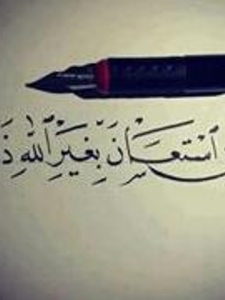 اسْتَعَانَ بِغَيْرِ اللَّهِ ذَ